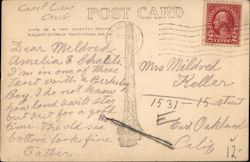 POST CARD
Dear Meldred
Amelia & Charlie
I'm in one of these
Boat with a Berkeley
Boy, I do not know
how long I will stay
but out for a good
time. The old sea
bottom looks fine
Father
Mrs Mildred
Keller
1531-15 street
East Oakland
Calif
12